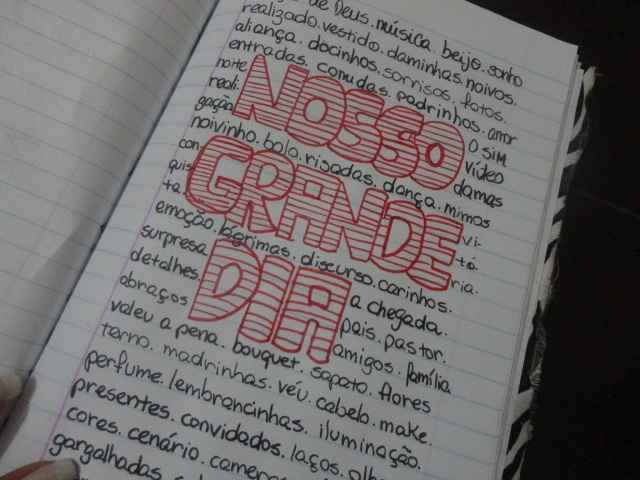 de Deus. música. beijo. sonho
realizado. vestido. daminhas. noivos.
aliança. docinhos. sorrisos. fotos.
entradas. comidas. padrinhos. amor
noite
reali
gação
NOSSO
o sim
vídeo
damas
noivinho. bolo. risadas. dança. mimos
con
quis
ta.
GRANDE
vi
tó
ria.
emoção. lágrimas. discurso. carinhos.
surpresa
detalhes
abraços
DIA
a chegada.
pais. pastor.
amigos. família
valeu a pena. bouquet. sapato. flores
terno. madrinhas. véu. cabelo. make.
perfume. lembrancinhas. iluminação.
presentes. convidados. laços.
cores. cenário.
gargalhadas.